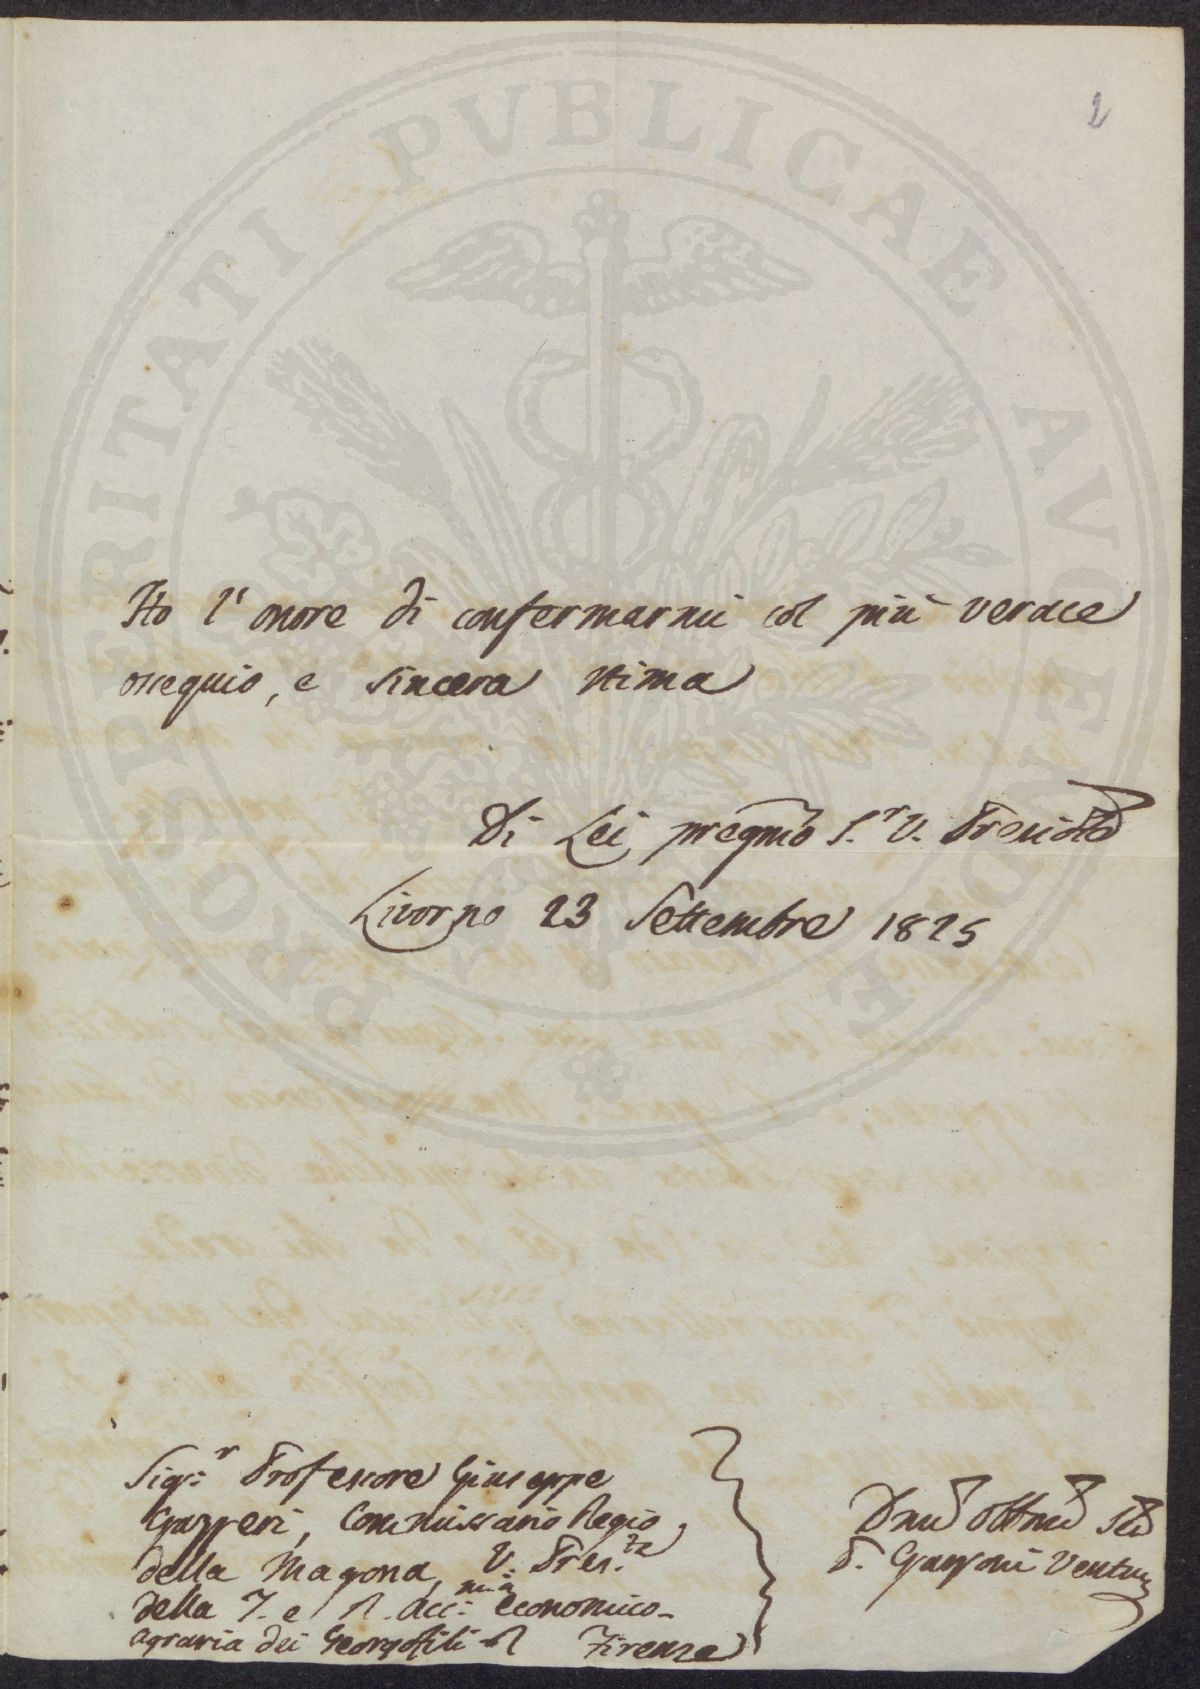 2
PROSPERITATI PUBLICAE AUGENDAE
Ho l'onore di confermarmi col più verace
ossequio, e sincera stima
Di Lei pregmo S.r V. Preside
Livorno 23 Settembre 1825
Sig.r Professore Giuseppe
Gazzeri, Commissario Regio
della Magona, V. Pres.te
della I. e R. Acc.mia economico-
agraria dei Georgofili di Firenze
Dmo Obbmo Se
P. Garzoni Venturi